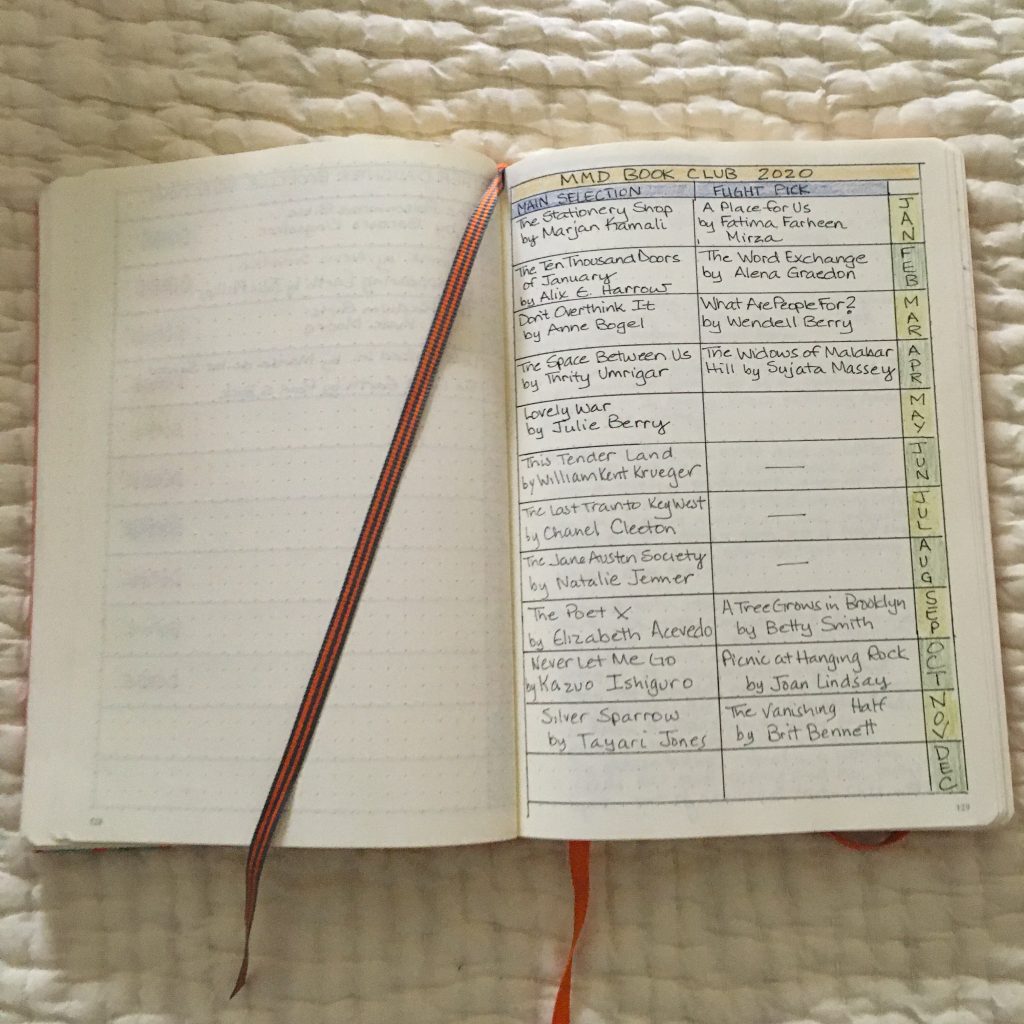 MMD BOOK CLUB 2020
MAIN SELECTION
FLIGHT PICK
The Stationery Shop
by Marjan Kamali
A Place for Us
by Fatima Farheen
Mirza
JAN
The Ten Thousand Doors
of January
by Alix E. Harrow
The Word Exchange
by Alena Graedon
FEB
Don't Overthink It
by Anne Bogel
What Are People For?
by Wendell Berry
MAR
The Space Between Us
by Thrity Umrigar
The Widows of Malabar
Hill by Sujata Massey
APR
Lovely War
by Julie Berry
MAY
This Tender Land
by William Kent Krueger
—
JUN
The Last Train to Key West
by Chanel Cleeton
—
JUL
The Jane Austen Society
by Natalie Jenner
—
AUG
The Poet X
by Elizabeth Acevedo
A Tree Grows in Brooklyn
by Betty Smith
SEP
Never Let Me Go
by Kazuo Ishiguro
Picnic at Hanging Rock
by Joan Lindsay
OCT
Silver Sparrow
by Tayari Jones
The Vanishing Half
by Brit Bennett
NOV
DEC
129